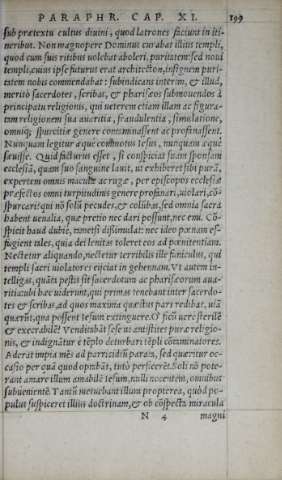 PARAPHR. CAP. XI. 199
sub prætextu cultus diuini, quod latrones faciunt in iti-
neribus. Non magnopere Dominus curabat illius templi,
quod cum suis ritibus uolebat aboleri, puritatem: sed noui
templi, cuius ipse futurus erat architecton, insignem puri-
tatem nobis commendabat: subindicans interim, & illud,
merito sacerdotes, scribas, & pharisæos submouendos à
principatu religionis, qui ueterem etiam illam ac figura-
tam religionem sua auaritia, fraudulentia, simulatione,
omniq́; spurcitiæ genere contaminassent ac profanassent.
Nunquam legitur æque commotus Iesus, nunquam æque
sæuisse. Quid facturus esset, si conspiciat suam sponsam
ecclesiã, quam suo sanguine lauit, ut exhiberet sibi purã,
expertem omnis maculæ ac rugæ, per episcopos ecclesiæ
præfectos omni turpitudinis genere profanari, uiolari, cō-
spurcari: qui nō solũ pecudes, & colũbas, sed omnia sacra
habent uenalia, quæ pretio nec dari possunt, nec emi. Cō-
spicit haud dubie, tametsi dissimulat: nec ideo pœnam ef-
fugient tales, quia dei lenitas toleret eos ad pœnitentiam.
Nectetur aliquando, nectetur terribilis ille funiculus, qui
templi sacri uiolatores eijciat in gehennam. Vt autem in-
telligas, quãta pestis sit sacerdotum ac pharisæorum aua-
ritia: ubi hæc uiderunt, qui primas tenebant inter sacerdo-
tes & scribas, ad quos maxima quæstus pars redibat, uiã
quærũt, qua possent Iesum extinguere. O ficũ uere sterilē
& execrabilē! Vendicabãt sese ut antistites puræ religio-
nis, & indignãtur è tēplo deturbari tēpli cōtaminatores.
Aderat impia mēs ad parricidiũ parata, sed quæritur oc-
casio per quã quod optabãt, tutò perficerēt. Soli nō pote-
rant amare illum amabilē Iesum, nulli nocentem, omnibus
subuenientē. Tantũ metuebant illum propterea, quòd po-
pulus suspiceret illius doctrinam, & ob cōspecta miracula
N 4 magni